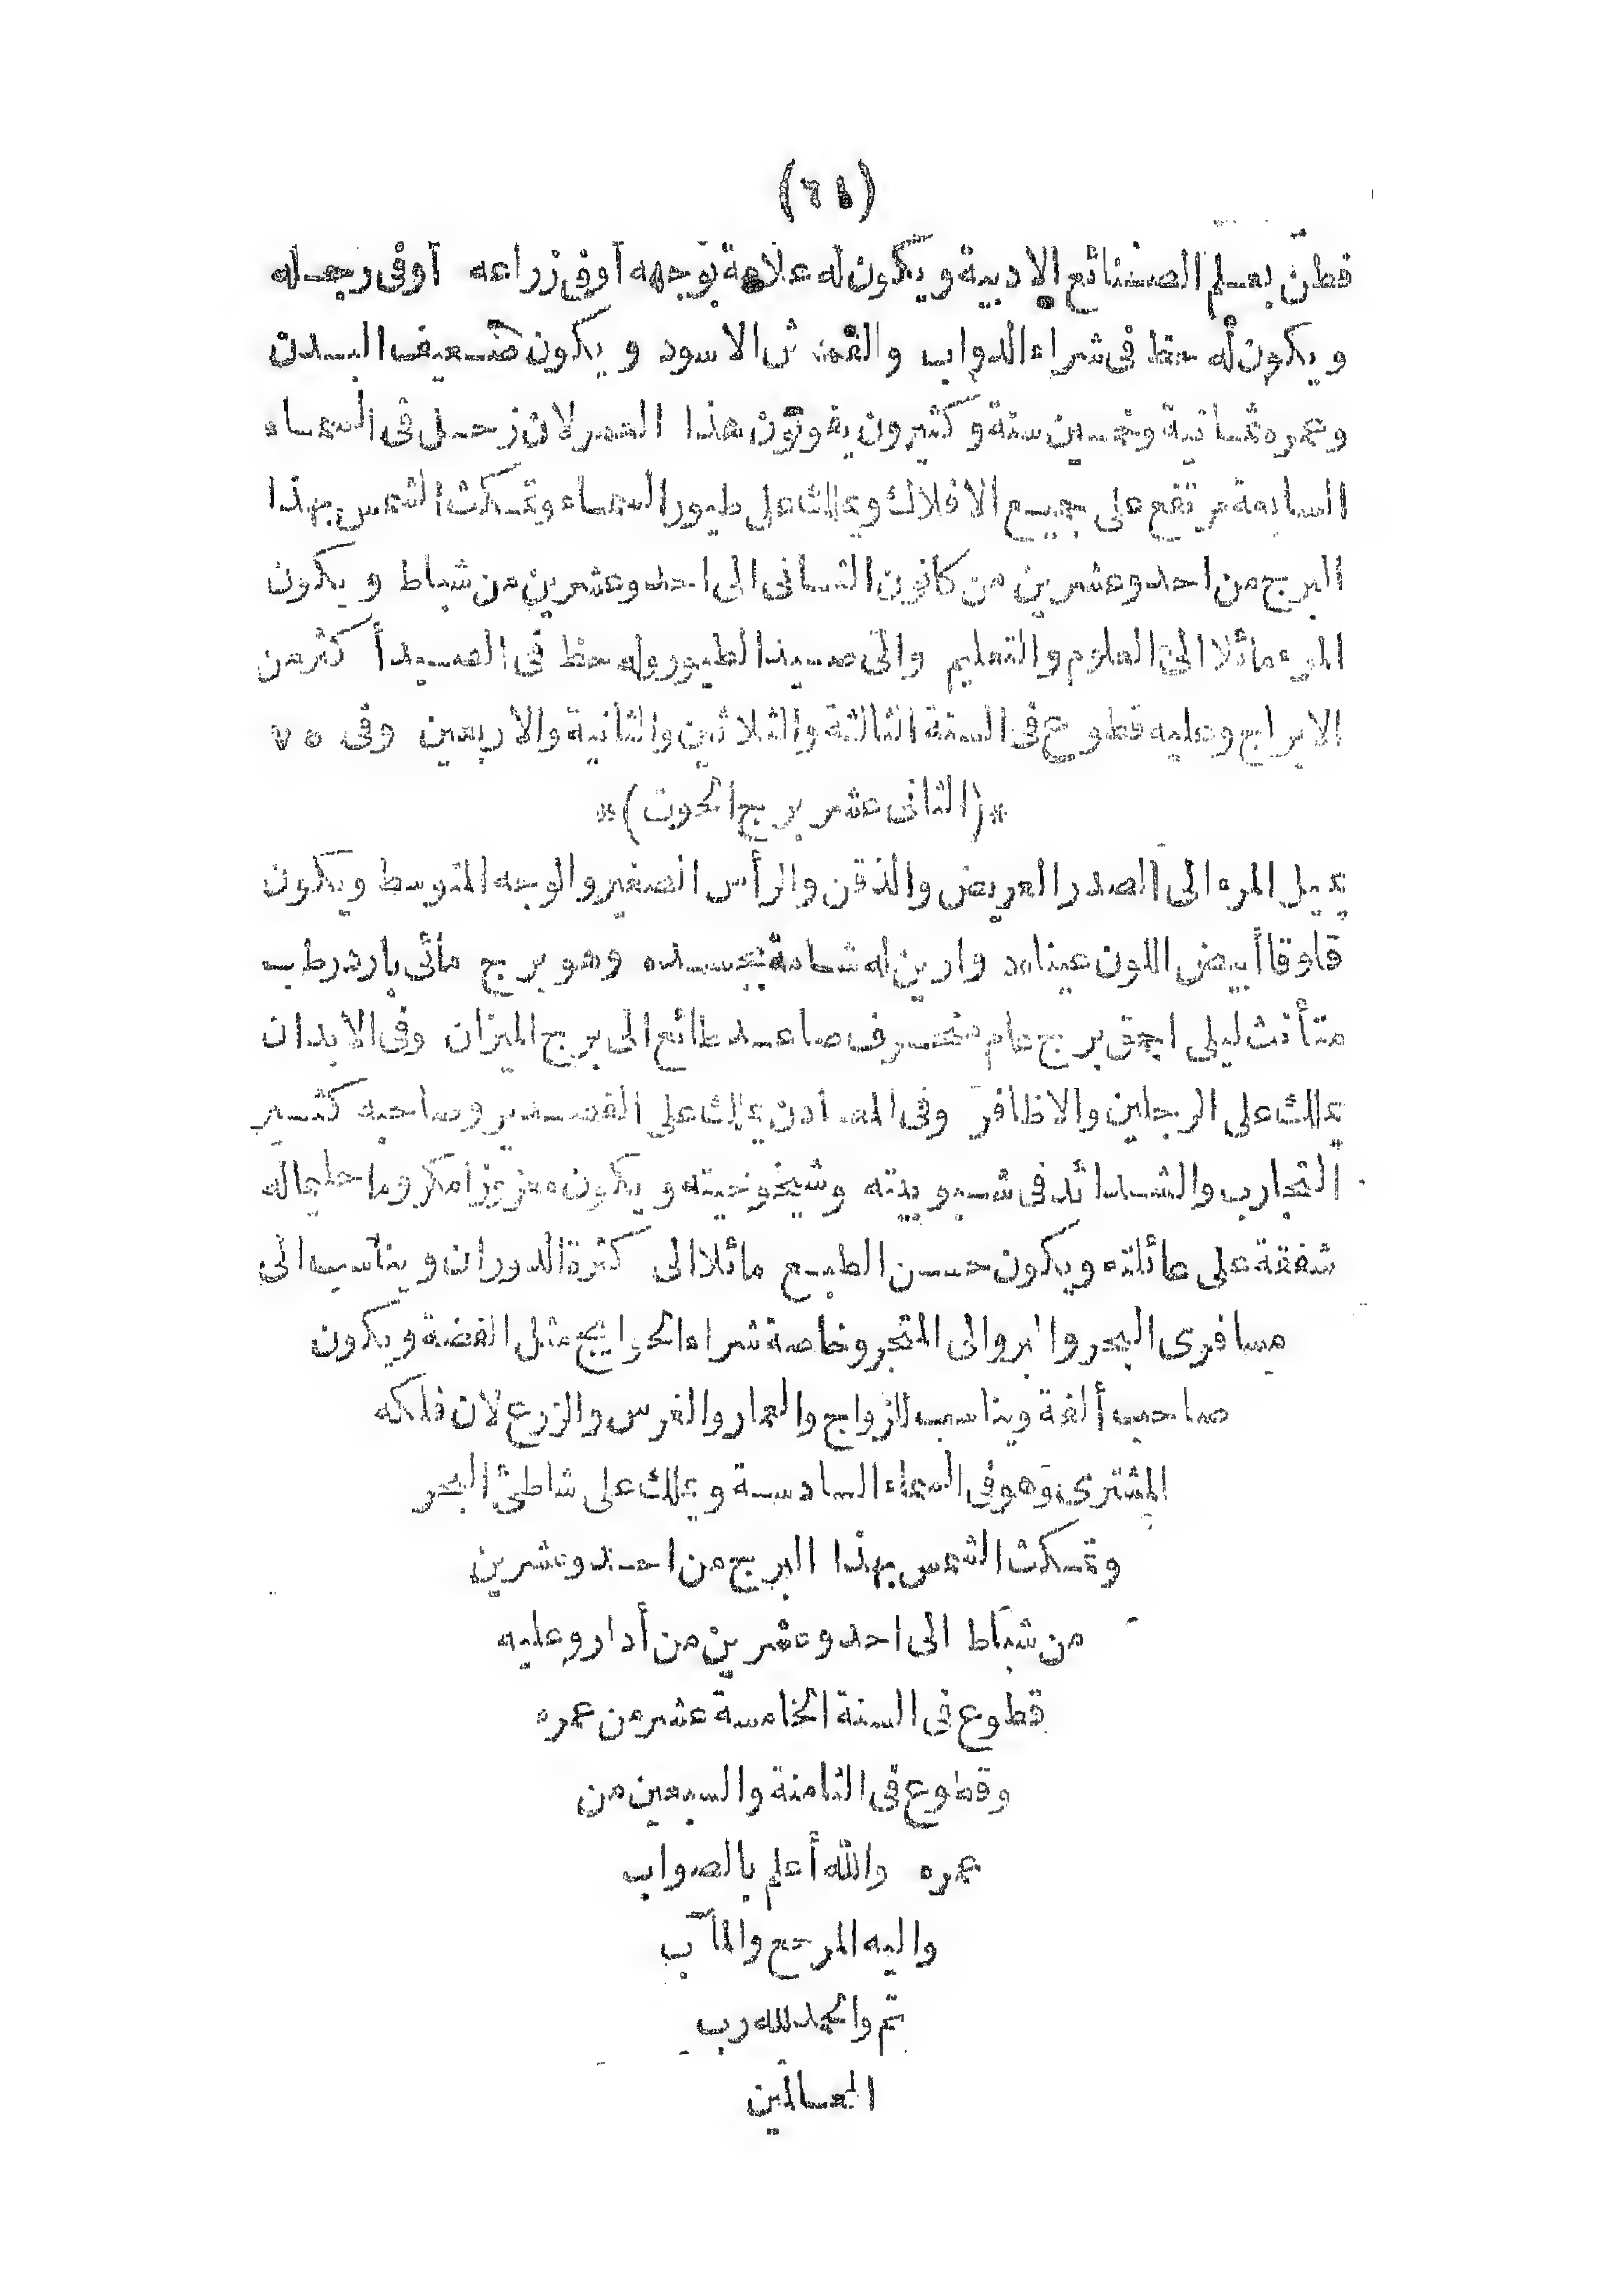 (٦٤)
فطن بعلم الصنائع الادبية ويكون له علامة بوجهه أوفى زراعه أوفى رجله
ويكون له حظ فى شراء الدواب والقماش الاسود ويكون ضعيف البدن
وعمره ثمانية وخمسين سنة وكثيرون يفوتون هذا العمر لان زحل فى السماء
السابعة مرتفع على جميع الافلاك ويملك على طيور السماء وتمكث الشمس بهذا
البرج من احد وعشرين من كانون الثانى الى احد وعشرين من شباط ويكون
المرء مائلا الى العلوم والتعليم والى صيد الطيور وله حظ فى الصيد أكثر من
الابراج وعليه قطوع فى السنة الثالثة والثلاثين والثانية والاربعين وفى ٧٥
*(الثانى عشر برج الحوت)*
يميل المرء الى الصدر العريض والذقن والرأس الصغير والوجه المتوسط ويكون
قاوقا أبيض اللون عيناه دوارين له شامة بجسده وهو برج مائى بارد رطب
متأنث ليلى احمق برج عام منحرف صاعد طائع الى برج الميزان وفى الابدان
يملك على الرجلين والاظافر وفى المعادن يملك على القصدير وصاحبه كثير
التجارب والشدائد فى شبوبيته وشيخوخيته ويكون معزوزا مكروما حليما له
شفقة على عائلته ويكون حسن الطبع مائلا الى كثرة الدوران ويناسب الى
مسافرى البحر والبر والى المتجر وخاصة شراء الحوايج مثل الفضة ويكون
صاحب ألفة ويناسب للزواج والعمار والغرس والزرع لان فلكه
المشترى وهو فى السماء السادسة ويملك على شاطئ البحر
وتمكث الشمس بهذا البرج من احد وعشرين
من شباط الى احد وعشرين من أدار وعليه
قطوع فى السنة الخامسة عشر من عمره
وقطوع فى الثامنة والسبعين من
عمره والله أعلم بالصواب
واليه المرجع والمآب
تم والحمد لله رب
العالمين